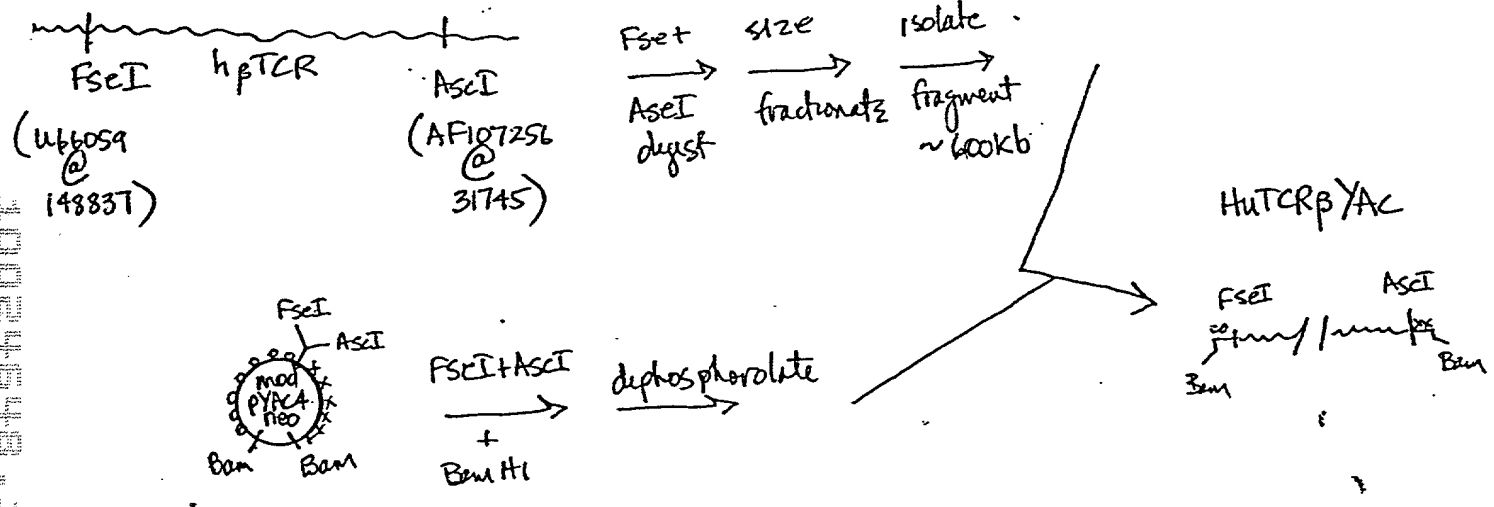 FseI hβTCR AscI
(U66059 @ 148837)
(AF107256 @ 31745)
Fse+ AseI digest
size fractionate
isolate fragment ~600kb
HuTCRβ YAC
FseI AscI
Bam Bam
FseI
AscI
mod
pYAC4
neo
Bam Bam
FseI+AscI
+
Bam H1
dephosphorolate